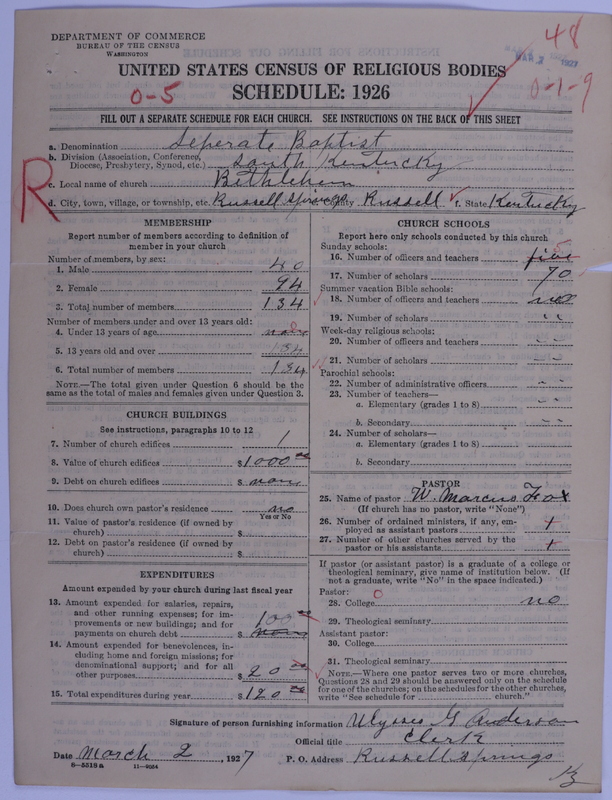 DEPARTMENT OF COMMERCE
BUREAU OF THE CENSUS
WASHINGTON
48
1927
0-1-9
UNITED STATES CENSUS OF RELIGIOUS BODIES
0-5
SCHEDULE: 1926
FILL OUT A SEPARATE SCHEDULE FOR EACH CHURCH. SEE INSTRUCTIONS ON THE BACK OF THIS SHEET
R
a. Denomination Seperate Baptist
b. Division (Association, Conference, Diocese, Presbytery, Synod, etc.) South Kentucky
c. Local name of church Bethlehem
d. City, town, village, or township, etc. Russell Springs County Russell f. State Kentucky
MEMBERSHIP
Report number of members according to definition of
member in your church
Number of members, by sex:
1. Male 40
2. Female 94
3. Total number of members 134
Number of members under and over 13 years old:
4. Under 13 years of age none 0
5. 13 years old and over 134
6. Total number of members 134
NOTE.—The total given under Question 6 should be
same as the total of males and females given under Question 3.
CHURCH BUILDINGS
See instructions, paragraphs 10 to 12
7. Number of church edifices 1
8. Value of church edifices $1000 00
9. Debt on church edifices $ none
10. Does church own pastor's residence no
Yes or No
11. Value of pastor's residence (if owned by
church) $
12. Debt on pastor's residence (if owned by
church) $
EXPENDITURES
Amount expended by your church during last fiscal year
13. Amount expended for salaries, repairs,
and other running expenses; for im-
provements or new buildings; and for
payments on church debt $ 100 00 none
14. Amount expended for benevolences, in-
cluding home and foreign missions; for
denominational support; and for all
other purposes $ 20 00
15. Total expenditures during year $120 00
CHURCH SCHOOLS
Report here only schools conducted by this church
Sunday schools:
16. Number of officers and teachers five 5
17. Number of scholars 70
Summer vacation Bible schools:
18. Number of officers and teachers
19. Number of scholars " "
Week-day religious schools:
20. Number of officers and teachers " "
21. Number of scholars " "
Parochial schools:
22. Number of administrative officers " "
23. Number of teachers—
a. Elementary (grades 1 to 8) " "
b. Secondary " "
24. Number of scholars—
a. Elementary (grades 1 to 8)
b. Secondary
PASTOR
25. Name of pastor W. Marcus Fox
(If church has no pastor, write "None")
26. Number of ordained ministers, if any, em-
ployed as assistant pastors
27. Number of other churches served by the
pastor or his assistants
If pastor (or assistant pastor) is a graduate of a college or
theological seminary, give name of institution below. (If
not a graduate, write "No" in the space indicated.)
Pastor: 0
28. College no
29. Theological seminary
Assistant pastor:
30. College
31. Theological seminary
NOTE.—Where one pastor serves two or more churches,
Questions 28 and 29 should be answered only on the schedule
for one of the churches; on the schedules for the other churches,
write "See schedule for church."
Signature of person furnishing information Ulysses G Anderson
Official title Clerk
Date March 2, 1927 P. O. Address Russell Springs
8-5518a 11-9034